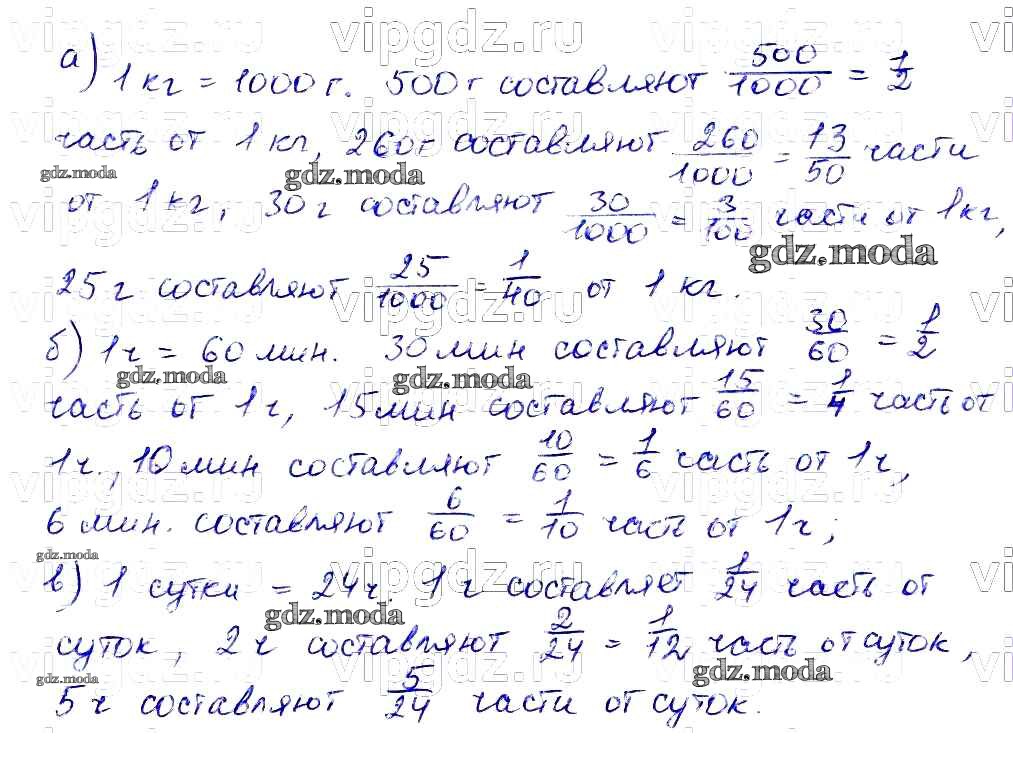 а) 1 кг = 1000 г. 500 г составляют 500/1000 = 1/2
часть от 1 кг, 260 г составляют 260/1000 = 13/50 части
от 1 кг, 30 г составляют 30/1000 = 3/100 части от 1 кг,
25 г составляют 25/1000 = 1/40 от 1 кг.
б) 1 ч = 60 мин. 30 мин составляют 30/60 = 1/2
часть от 1 ч, 15 мин составляют 15/60 = 1/4 часть от
1 ч., 10 мин составляют 10/60 = 1/6 часть от 1 ч,
6 мин. составляют 6/60 = 1/10 часть от 1 ч;
в) 1 сутки = 24 ч. 1 ч составляет 1/24 часть от
суток, 2 ч составляют 2/24 = 1/12 часть от суток,
5 ч составляют 5/24 части от суток.
vipgdz.ru
gdz.moda